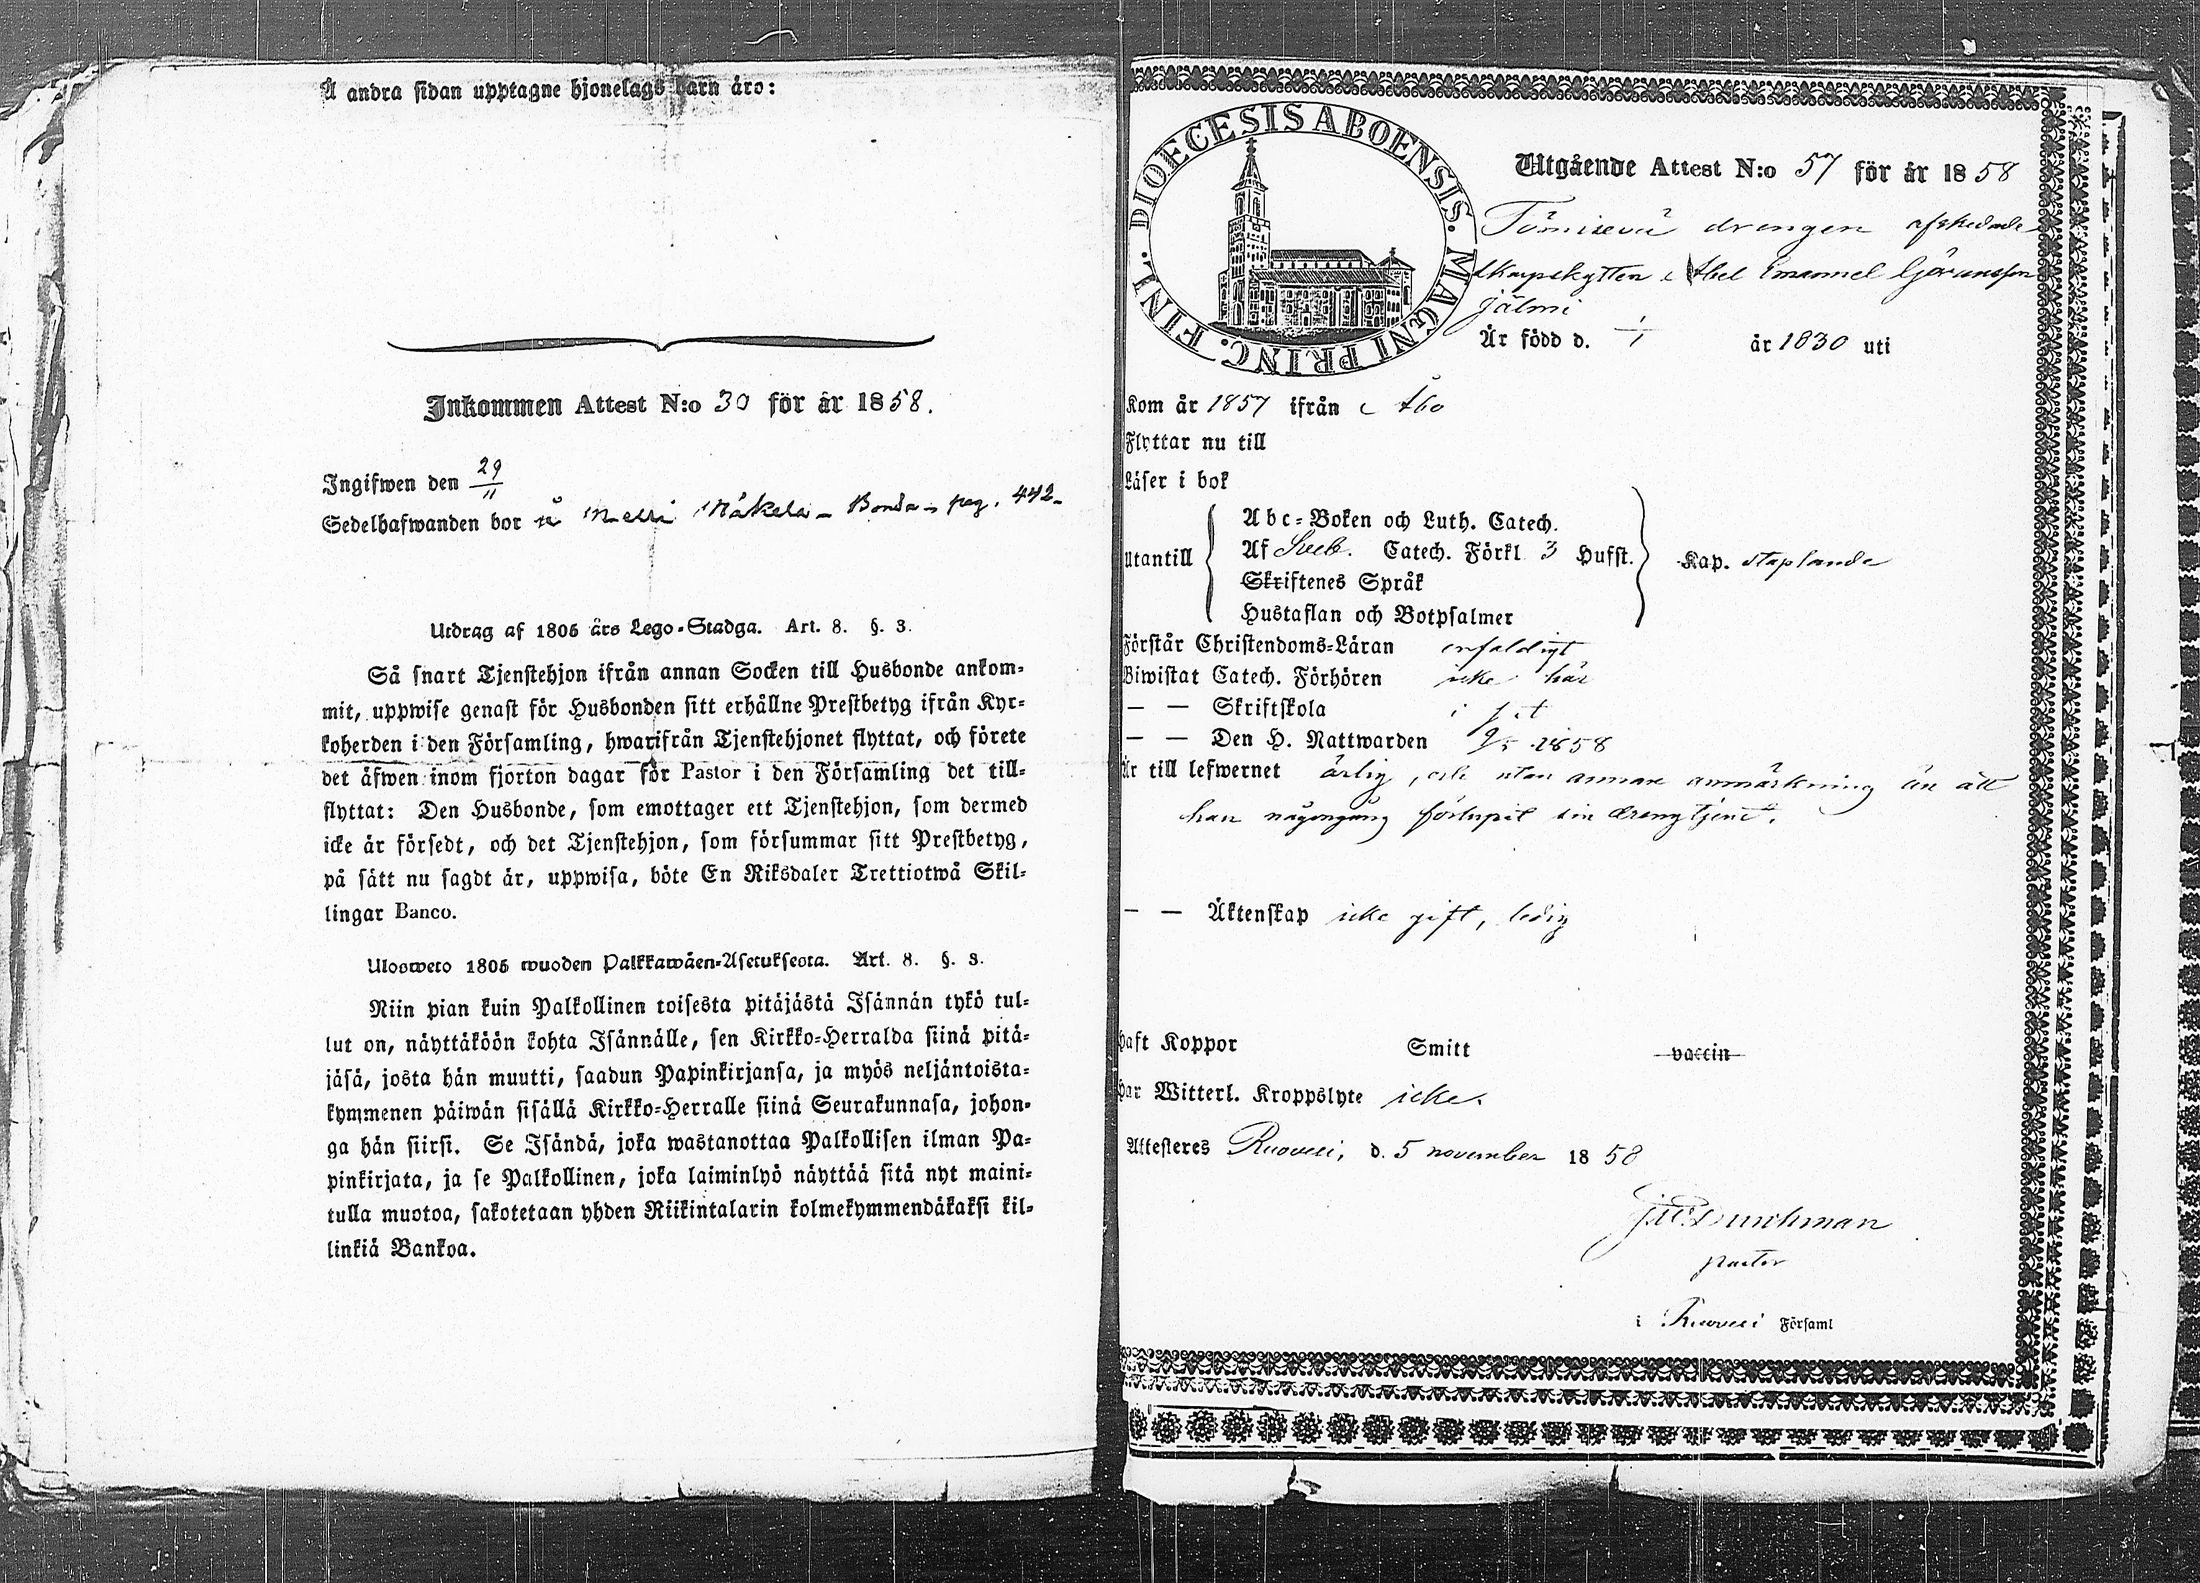 Å andra sidan upptagne hjonelags barn äro:
Inkommen Attest N:o 30 för år 1858.
Ingifwen den 29/11
Sedelhafwanden bor å Mäkelä Bonde pag. 442
Utdrag af 1805 års Lego-Stadga. Art. 8. §. 3.
Så snart Tjenstehjon ifrån annan Socken till Husbonde ankom-
mit, uppwise genast för Husbonden sitt erhållne Prestbetyg ifrån Kyr-
koherden i den Församling, hwarifrån Tjenstehjonet flyttat, och förete
det äfwen inom fjorton dagar för Pastor i den Församling det till-
flyttat: Den Husbonde, som emottager ett Tjenstehjon, som dermed
icke är försedt, och det Tjenstehjon, som försummar sitt Prestbetyg,
på sätt nu sagdt är, uppwisa, böte En Riksdaler Trettiotwå Skil-
lingar Banco.
Ulosweto 1805 wuoden Palkkawäen-Asetuksesta. Art. 8. §. 3.
Niin pian kuin Palkollinen toisesta pitäjästä Isännän tykö tul-
lut on, näyttäköön kohta Isännälle, sen Kirkko-Herralda siinä pitä-
jäsä, josta hän muutti, saadun Papinkirjansa, ja myös neljäntoista-
kymmenen päiwän sisällä Kirkko-Herralle siinä Seurakunnasa, johon-
ga hän siirsi. Se Isändä, joka wastanottaa Palkollisen ilman Pa-
pinkirjata, ja se Palkollinen, joka laiminlyö näyttää sitä nyt maini-
tulla muotoa, sakotetaan yhden Riikintalarin kolmekymmendäkaksi kil-
linkiä Bankoa.
DIOECESIS ABOENSIS. MAGNI PRINC. FINL.
Utgående Attest N:o 57 för år 1858
drengen afskedade
skarpskytten Abel Emanuel Göransson
Jälmi
Är född d. år 1830 uti
Kom år 1857 ifrån Åbo
Flyttar nu till
Läser i bok
Abc-Boken och Luth. Catech.
Utantill Af Sveb. Catech. Förkl 3 Hufst. Kap. staplande
Skriftenes Språk
Hustaflan och Botpsalmer
Förstår Christendoms-Läran enfaldigt
Biwistat Catech. Förhören icke här
— — Skriftskola
— — Den H. Nattwarden 1858
Är till lefwernet ärlig, och utan annan anmärkning än att
han någongång förlupit sin drengtjenst.
— — Äktenskap icke gift, ledig
Haft Koppor Smitt vaccin
Har Witterl. Kroppslyte icke.
Attesteres Ruovesi, d. 5 november 1858
pastor
i Ruovesi Församl